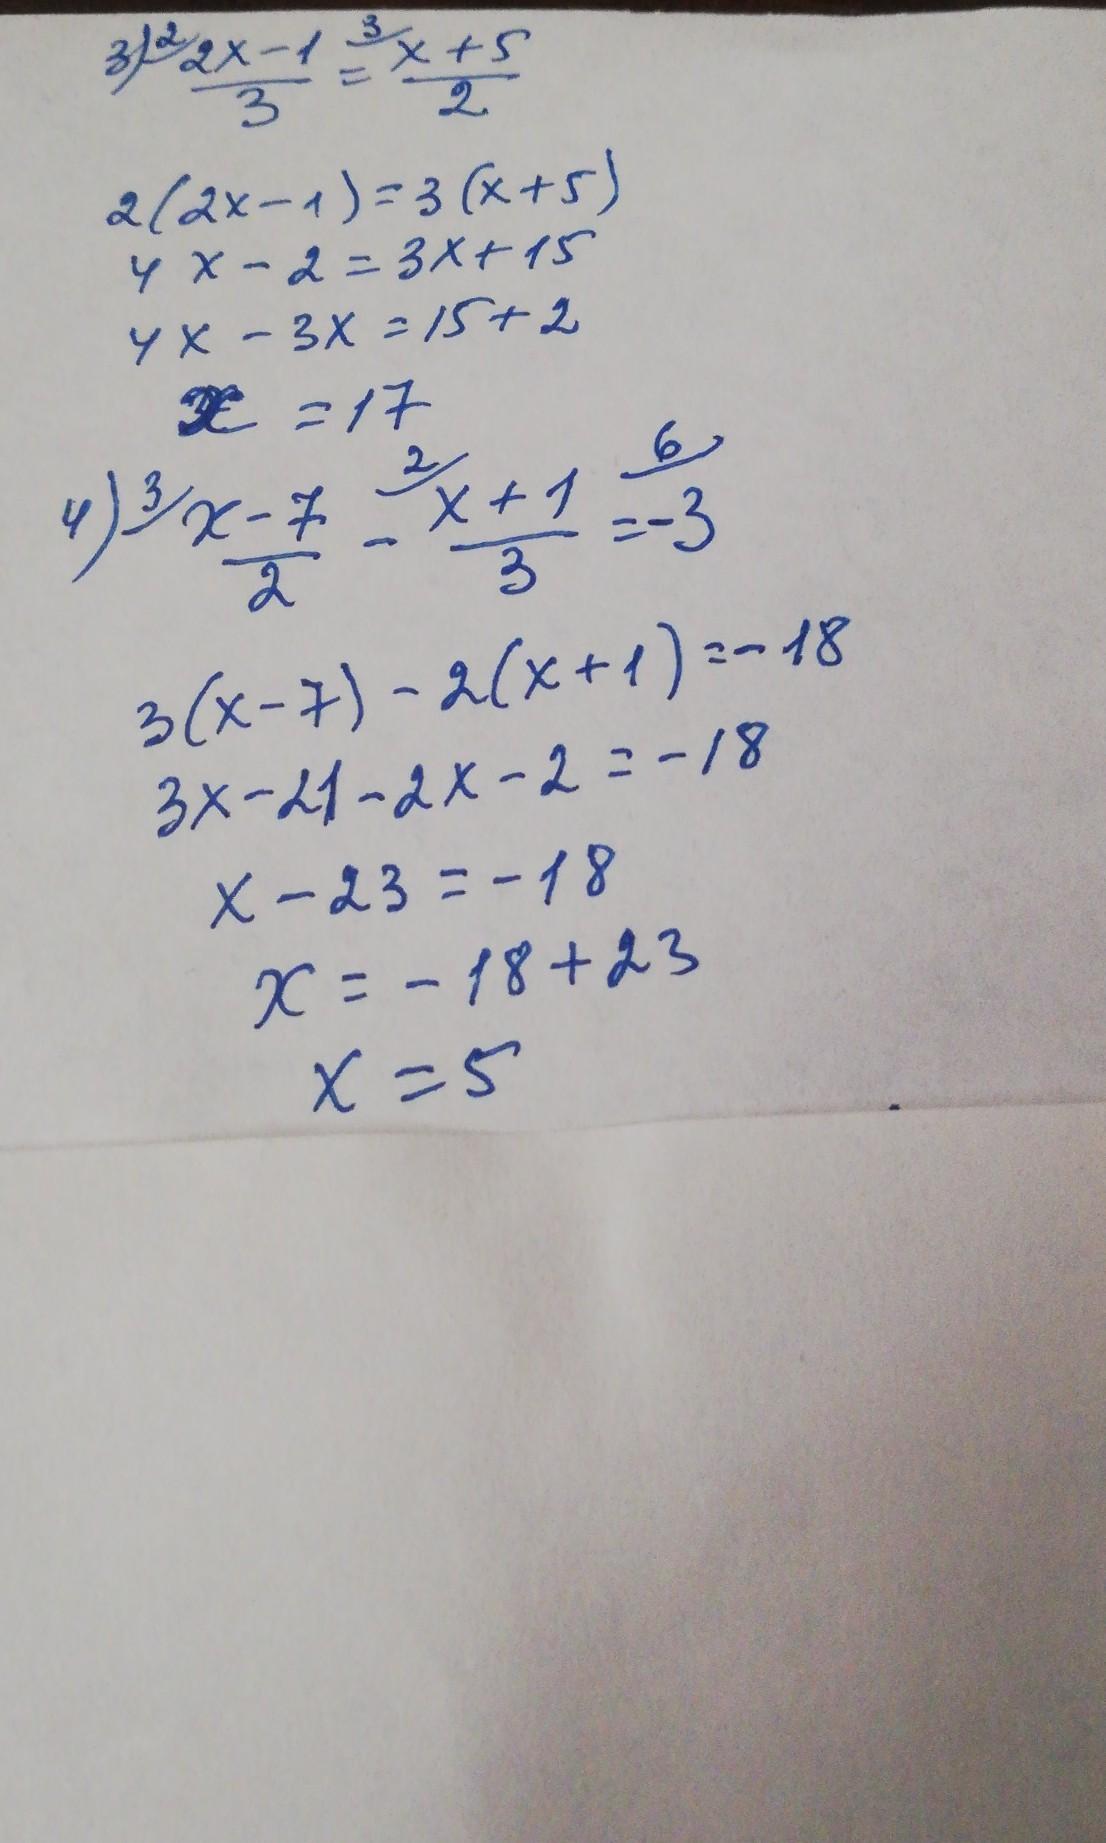 3) 2/ 2x-1/3 = 3/ x+5/2
2(2x-1)=3(x+5)
4x-2=3x+15
4x-3x=15+2
x=17
4) 3/ x-7/2 - 2/ x+1/3 = 6/ -3
3(x-7)-2(x+1)=-18
3x-21-2x-2=-18
x-23=-18
x=-18+23
x=5